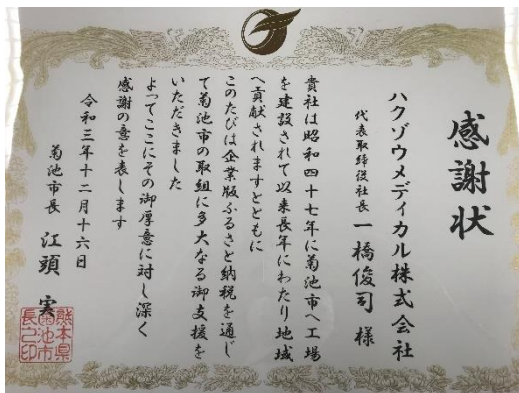 感謝状
ハクゾウメディカル株式会社
代表取締役社長 一橋俊司 様
貴社は昭和四十七年に菊池市へ工場
を建設されて以来長年にわたり地域
へ貢献されますとともに
このたびは企業版ふるさと納税を通じ
て菊池市の取組に多大なる御支援を
いただきました
よってここにその御厚意に対し深く
感謝の意を表します
令和三年十二月十六日
菊池市長 江頭 実
熊本県
菊池市
長之印